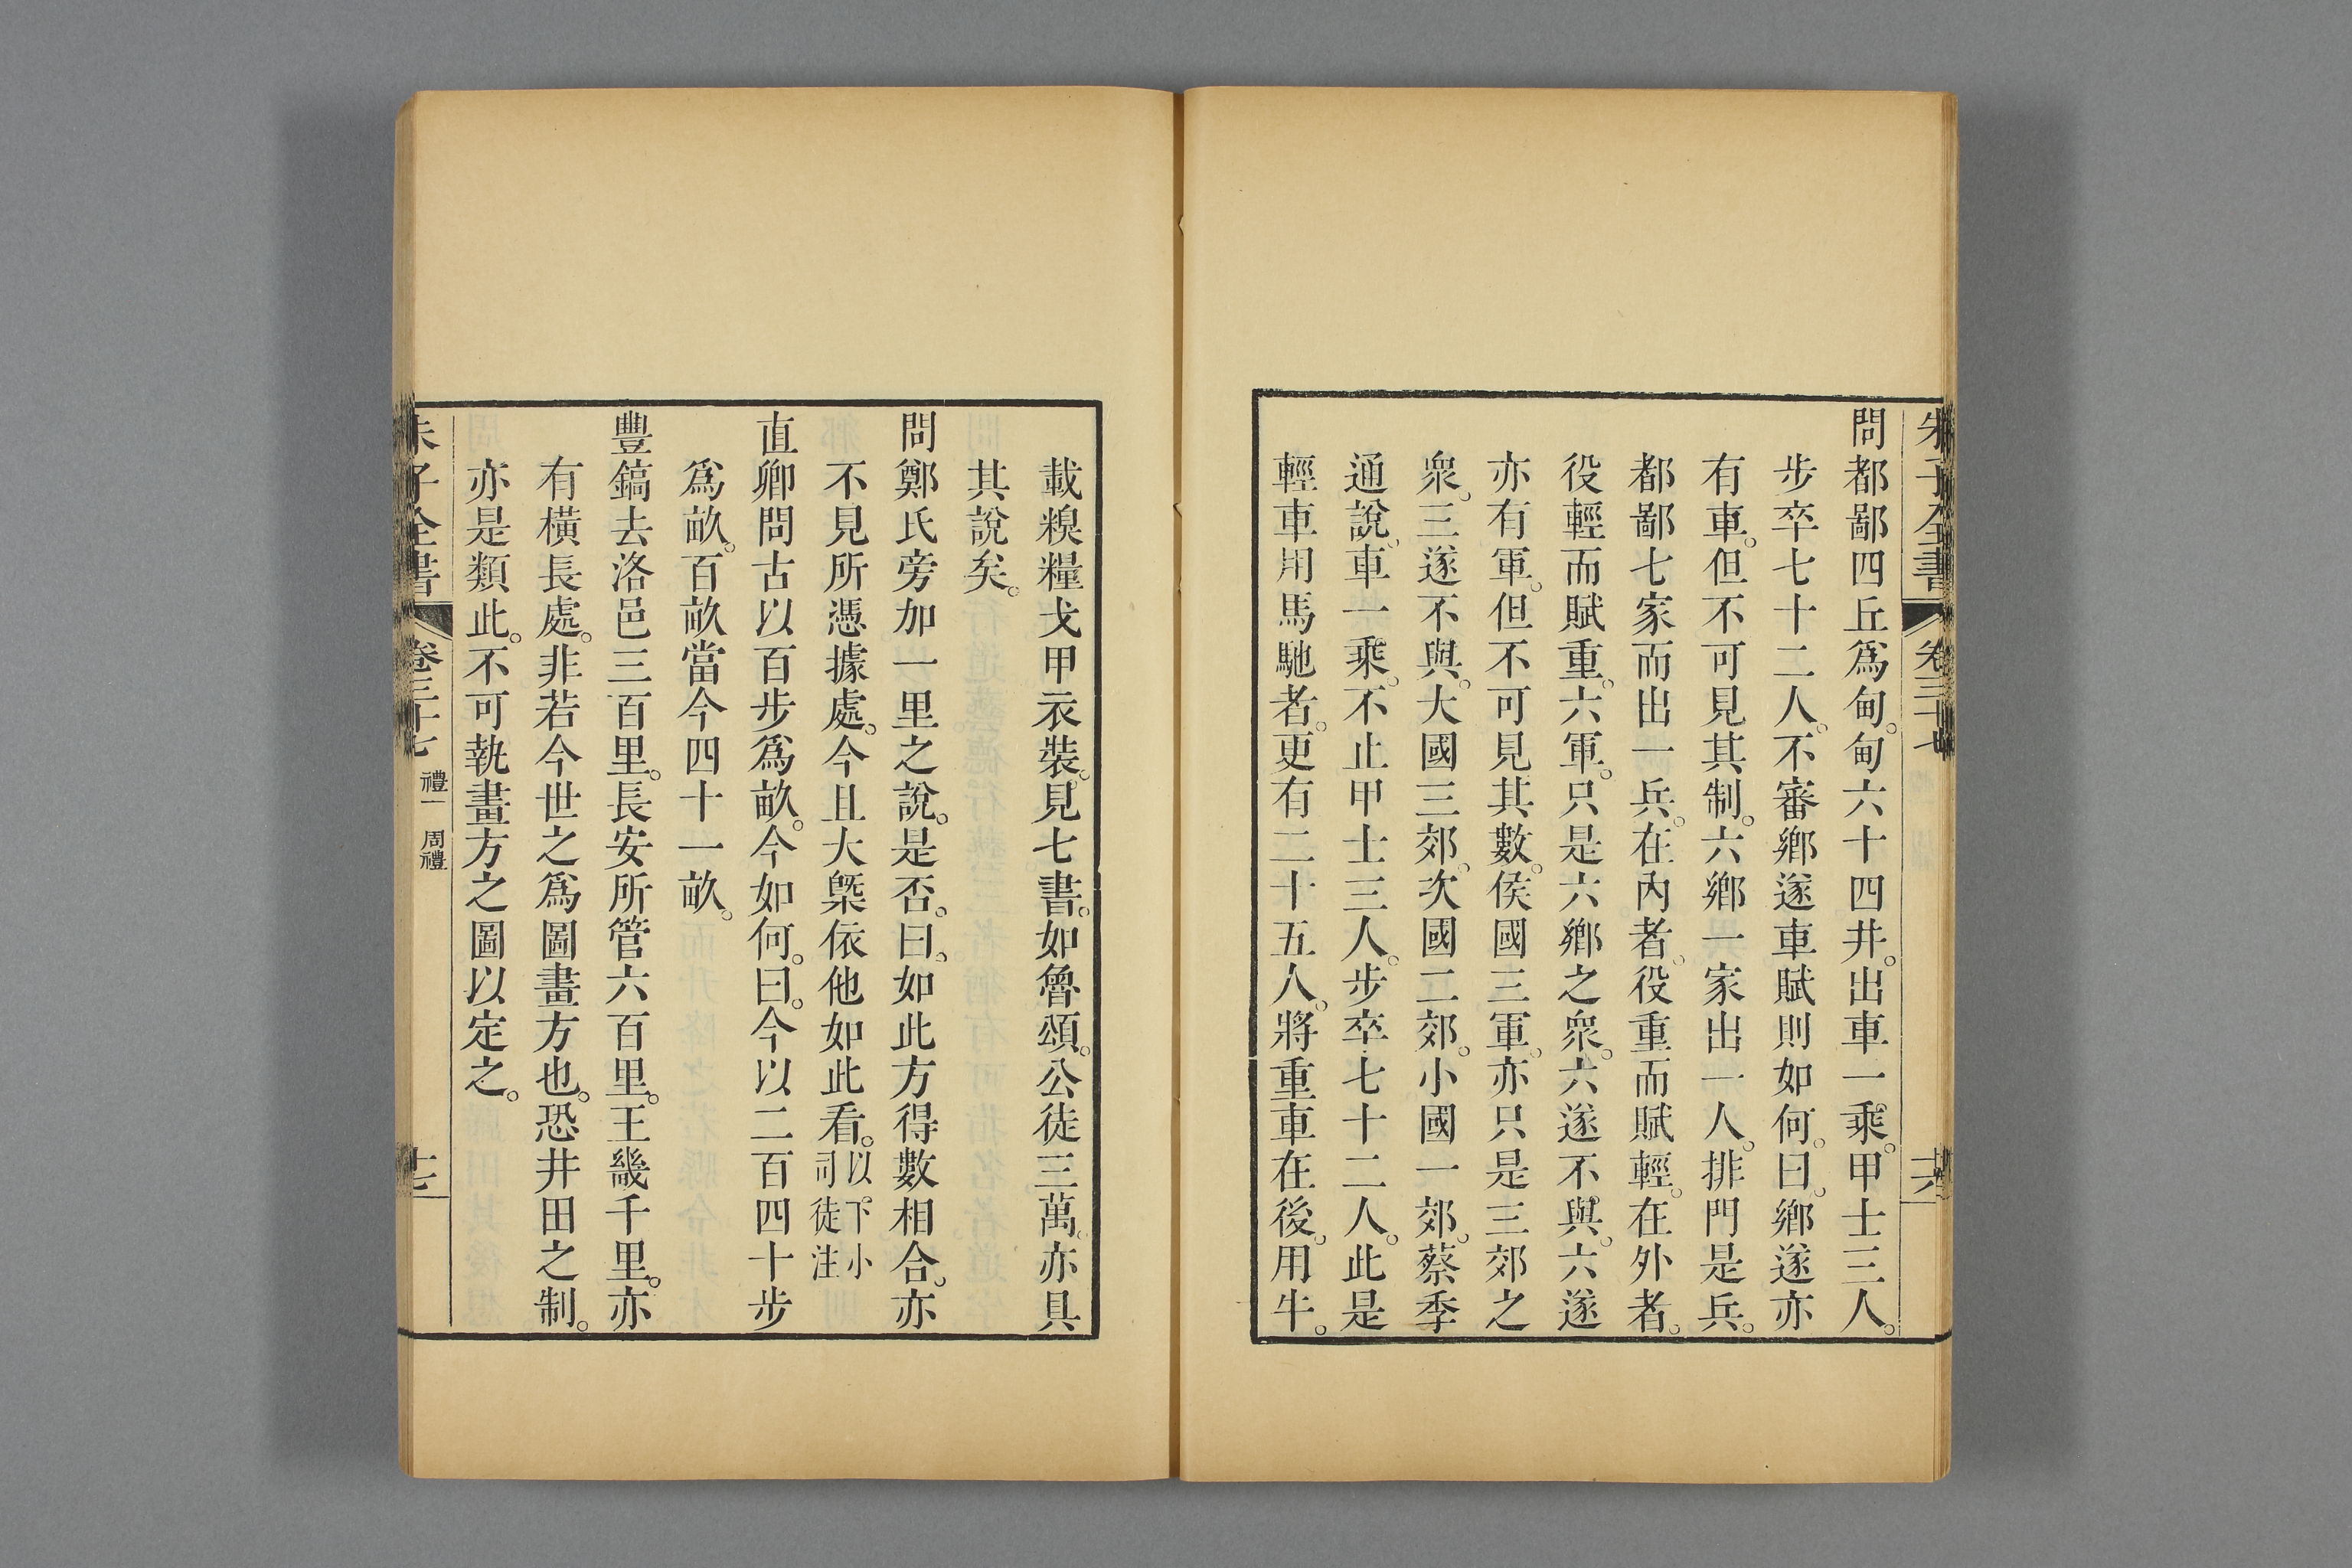 朱子全書 卷三十七 十六
問都鄙四丘爲甸。甸六十四井。出車一乘。甲士三人。
步卒七十二人。不審鄉遂車賦則如何。曰。鄉遂亦
有車。但不可見其制。六鄉一家出一人。排門是兵。
都鄙七家而出一兵。在內者。役重而賦輕。在外者。
役輕而賦重。六軍。只是六鄉之衆。六遂不與。六遂
亦有軍。但不可見其數。侯國三軍。亦只是三郊之
衆。三遂不與。大國三郊。次國二郊。小國一郊。蔡季
通說。車一乘。不止甲士三人。步卒七十二人。此是
輕車用馬馳者。更有二十五人。將重車在後。用牛。
載糗糧戈甲衣裝。見七書。如魯頌。公徒三萬。亦具
其說矣。
問鄭氏旁加一里之說。是否。曰。如此方得數相合。亦
不見所憑據處。今且大槩依他如此看。以下小司徒注
直卿問古以百步爲畝。今如何。曰。今以二百四十步
爲畝。百畝當今四十一畝。
豐鎬去洛邑三百里。長安所管六百里。王畿千里。亦
有橫長處。非若今世之爲圖畫方也。恐井田之制。
亦是類此。不可執畫方之圖以定之。
朱子全書 卷三十七 禮一 周禮 十七